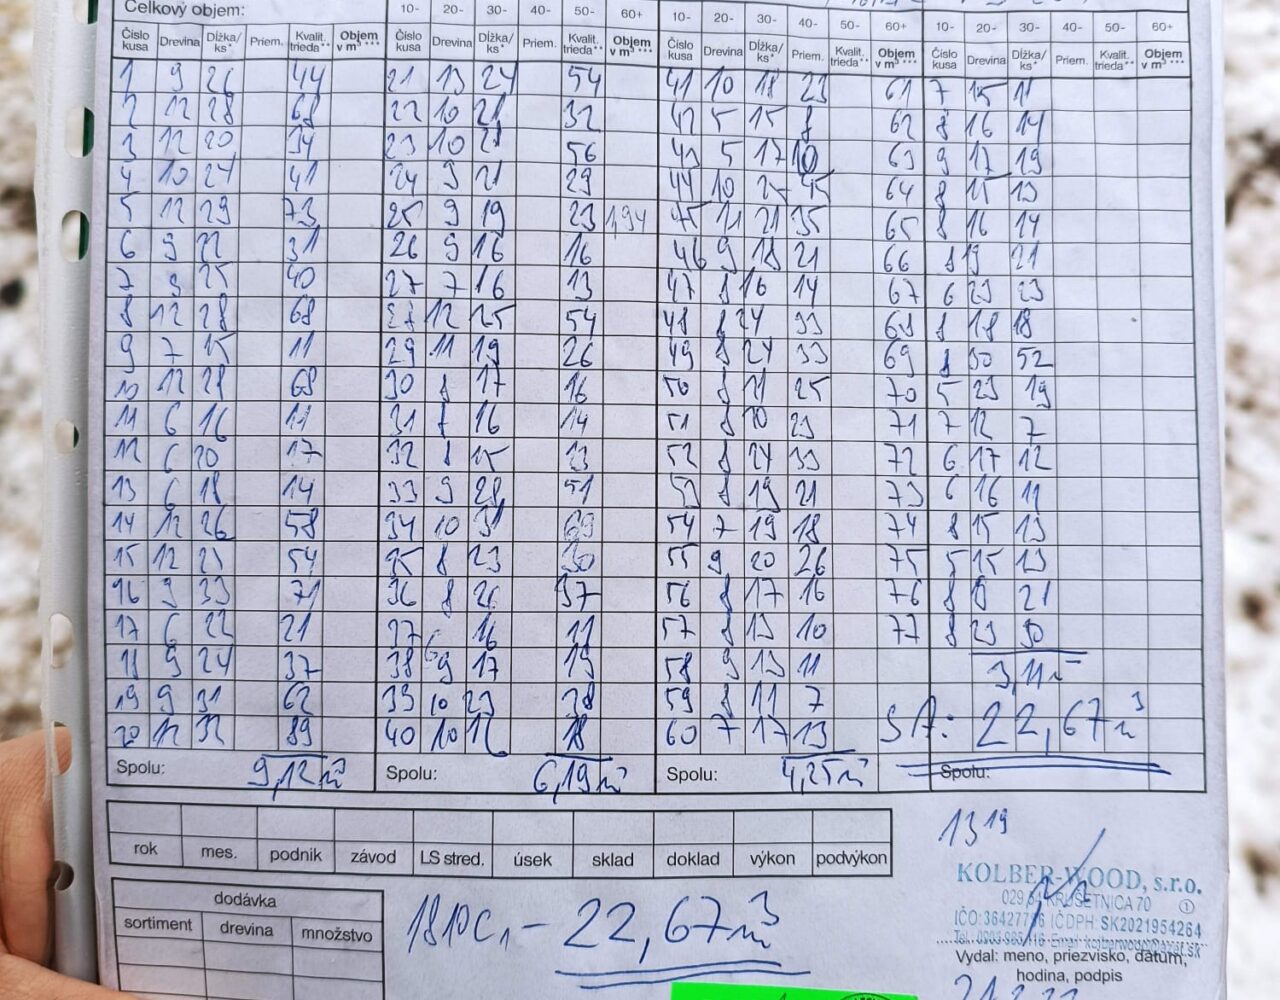 Celkový objem: 10- 20- 30- 40- 50- 60+ 10- 20- 30- 40- 50- 60+ 10- 20- 30- 40- 50- 60+
Číslo kusa Drevina Dĺžka/ks* Priem. Kvalit. trieda** Objem v m³*** Číslo kusa Drevina Dĺžka/ks* Priem. Kvalit. trieda** Objem v m³*** Číslo kusa Drevina Dĺžka/ks* Priem. Kvalit. trieda** Objem v m³*** Číslo kusa Drevina Dĺžka/ks* Priem. Kvalit. trieda** Objem v m³***
1 9 26 44 21 13 24 54 41 10 18 23 61 7 15 11
2 12 28 68 22 10 21 32 42 5 15 8 62 8 16 14
3 12 20 34 23 10 28 56 43 5 17 10 63 9 17 19
4 10 24 41 24 9 21 29 44 10 25 45 64 8 15 13
5 12 29 73 25 9 19 23 1,94 45 11 21 35 65 8 16 14
6 9 22 31 26 9 16 16 46 9 18 21 66 8 19 21
7 9 25 40 27 7 16 13 47 8 16 14 67 6 23 23
8 12 28 68 28 12 25 54 48 8 24 33 68 8 18 18
9 7 15 11 29 11 19 26 49 8 24 33 69 8 30 52
10 12 28 68 30 8 17 16 50 8 21 25 70 5 23 19
11 6 16 11 31 8 16 14 51 8 20 23 71 7 12 7
12 6 20 17 32 8 15 13 52 8 24 33 72 6 17 12
13 6 18 14 33 9 28 51 53 8 19 21 73 6 16 11
14 12 26 58 34 10 31 69 54 7 19 18 74 8 15 13
15 12 25 54 35 8 23 30 55 9 20 26 75 5 15 13
16 9 33 71 36 8 26 37 56 8 17 16 76 8 19 21
17 6 22 21 37 6 16 11 57 8 13 10 77 8 23 30
18 9 24 37 38 9 17 19 58 9 13 11 3,11m³
19 9 31 62 39 10 23 38 59 8 11 7
20 12 32 89 40 10 16 18 60 7 17 13 SA: 22,67m³
Spolu: 9,12m³ Spolu: 6,19m³ Spolu: 4,25m³ Spolu:
13 19
rok mes. podnik závod LS stred. úsek sklad doklad výkon podvýkon
KOLBER-WOOD, s.r.o.
KRUŠETNICA 70
IČDPH: SK2021954264
dodávka
sortiment drevina množstvo
22,67m³
Vydal: meno, priezvisko, dátum,
hodina, podpis